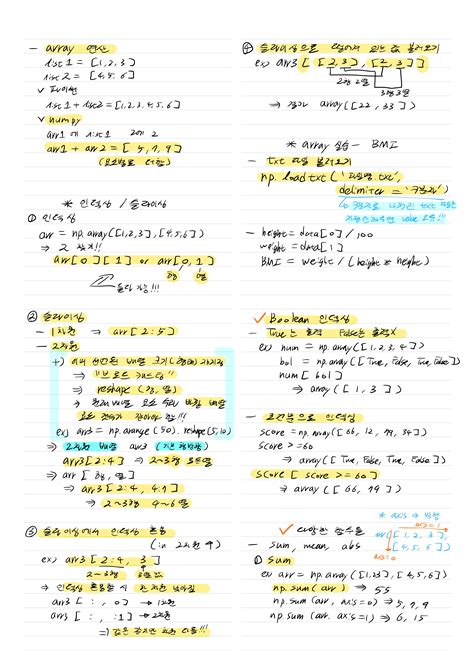 - array 연산
list1 = [1,2,3]
list2 = [4,5,6]
✓ 파이썬
list1 + list2 = [1,2,3,4,5,6]
✓ numpy
arr1 + arr2 = [5,7,9]
(요소별로 더함)
* 인덱싱 / 슬라이싱
① 인덱싱
arr = np.array([1,2,3],[4,5,6])
⇒ 2 찾기!!
arr[0][1] or arr[0,1]
행 열
둘다 가능!!!
② 슬라이싱
- 1차원 ⇒ arr[2:5]
- 2차원
⇒ "브로드 캐스팅"
⇒ reshape(행, 열)
ex) arr3 = np.arange(50).reshape(5,10)
⇒ 2차원 배열 arr3
arr3[2:4] ⇒ 2~3행 모든열
⇒ arr[행, 열]
⇒ arr3[2:4, 4:7]
⇒ 2~3행 4~6열
③ 슬라이싱에서 인덱싱 혼용
(in 2차원)
ex) arr3[2:4, 3]
2~3행 3열
arr3[:, 0] → 1차원
arr3[:, :1] → 2차원
⇒ 값은 같지만 차원 다름!!!
④ 슬라이싱으로 떨어져 있는 값 불러오기
ex) arr3[[2,3],[2,3]]
2행 2열
3행 3열
⇒ 결과 array([22, 33])
* array 실습 - BMI
- txt 파일 불러오기
np.loadtxt('파일명.txt',
delimiter = '구분자')
- height = data[0]/100
weight = data[1]
BMI = weight / (height * height)
✓ Boolean 인덱싱
- True는 출력 False는 출력X
ex) num = np.array([1,2,3,4])
bol = np.array([True, False, True, False])
num[bol]
⇒ array([1, 3])
- 조건문으로 인덱싱
score = np.array([66, 12, 79, 34])
score >= 60
⇒ array([True, False, True, False])
score[score >= 60]
⇒ array([66, 79])
✓ 다양한 함수들
- sum, mean, abs
* axis ⇒ 방향
axis=1
[1, 2, 3],
[4, 5, 6]
axis=0
① sum
ex) arr = np.array([1,2,3],[4,5,6])
np.sum(arr)
np.sum(arr, axis=0) ⇒ 5,7,9
np.sum(arr, axis=1) ⇒ 6, 15